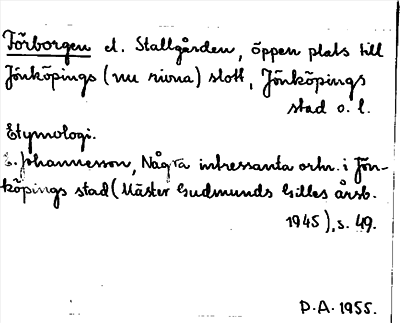 Förborgen el. Stallgården, öppen plats till
Jönköpings (nu rivna) slott, Jönköpings
stad o. l.
Etymologi.
E. Johannesson, Några intressanta ortn. i Jön-
köpings stad (Mäster Gudmunds Gilles årsb.
1945), s. 49.
P.A. 1955.